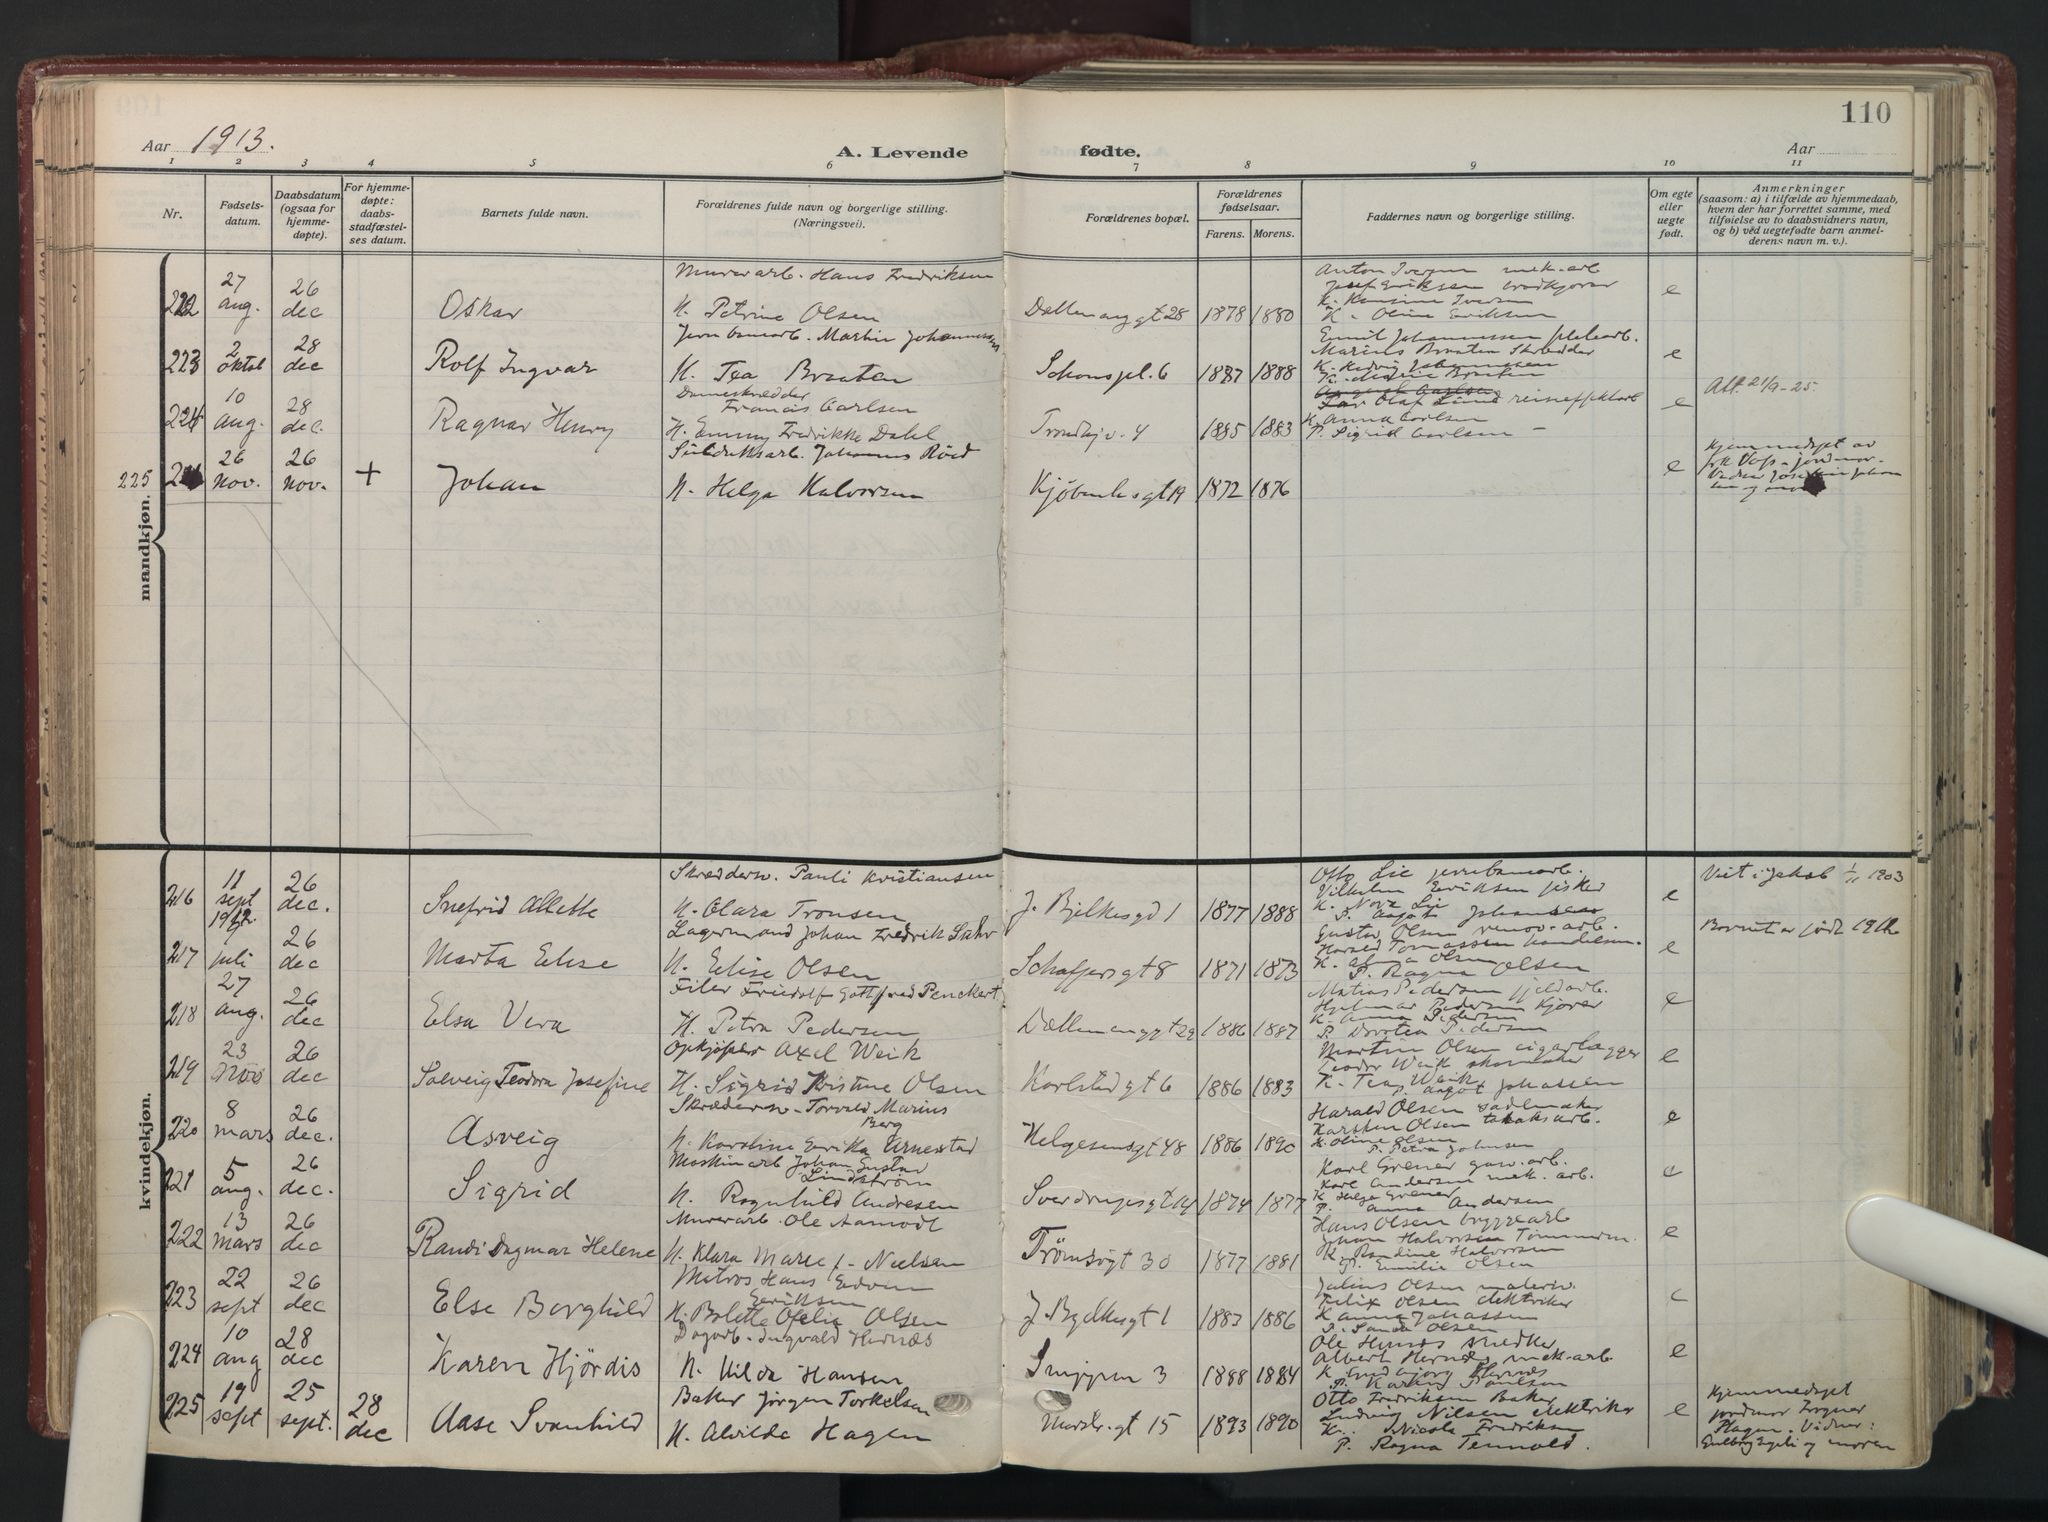 110
Aar 1913.
A. Levende fødte.
Aar
1 2 3 4 5 6 7 8 9 10 11
Nr.
Fødsels-
datum.
Daabsdatum
(ogsaa for
hjemme-
døpte).
For hjemme-
døpte:
daabs-
stadfæstel-
ses datum.
Barnets fulde navn.
Forældrenes fulde navn og borgerlige stilling.
(Næringsvei).
Forældrenes bopæl.
Forældrenes
fødselsaar.
Farens. Morens.
Faddernes navn og borgerlige stilling.
Om egte
eller
uegte
født.
Anmerkninger
(saasom: a) i tilfælde av hjemmedaab,
hvem der har forrettet samme, med
tilføielse av to daabsvidners navn,
og b) ved uegtefødte barn anmel-
derens navn m. v.).
mandkjøn.
222 27 aug. 26 dec Oskar
Murerarb. Hans Fredriksen
H. Petrine Olsen
1878 1880
Anton Iversen mek. arb
K. Oline Eriksen
e
223 2 oktob 28 dec Rolf Ingvar
Jernbanearb. Martin Johannessen
H. Tea Braaten
Schouspl. 6 1887 1888
Emil Johannessen
Marius Braaten Skrædder
e
224 10 aug. 28 dec. Ragnar Henry
Dameskrædder
Francis Carlsen
H. Emmy Fredrikke Dahl
Trondhj v. 4 1885 1883
Olaf Lund
K. Anna Carlsen
P. Sigrid Carlsen
e
Att. 21/9-25.
225 26 nov. 26 nov. + Johan
Johannes Röed
H. Helga Halvorsen
Kjöbenh.sgt 19 1872 1876
e
Hjemmedöpt av
frk Vogs. jordmor.
kvindekjøn.
216 11 sept 1912. 26 dec. Snefrid Alette
Skræddersv. Pauli Kristiansen
H. Clara Tronsen
J. Bjelkesgd 1 1877 1888
Otto Lie jernbanearb.
Vilhelm Eriksen fisker
K. Nora Lie
P. Aagot Johansen
e
Viet i Jakob 1/11 1903
217 7 juli 26 dec Marta Elise
Lagermand Johan Fredrik
H. Elise Olsen
Schaffersgt 8 1871 1873
Gustav Olsen renov. arb.
Harald Tomassen handelsm.
P. Ragna Olsen
e
Barnet er født 1912
218 27 aug. 26 dec Elsa Vera
Filer Fridolf Gottfred Penckert
H. Petra Pedersen
1886 1887
Matias Pedersen fjeldarb.
Hjelmar Pedersen Kjører
K. Anna Pedersen
P. Dorotea Pedersen
e
219 23 nov 26 dec Solveig Teodora Josefine
Opkjöper Axel Weik
H. Sigrid Kristine Olsen
Karlstadgt 6 1886 1883
Martin Olsen cigarlægger
Teodor Weik skomaker
K. Tea Weik
Aagot Johassen
e
220 8 mars 26 dec. Asveig
Skræddersv. Torvald Marius
Berg
H. Karoline Erika Ernestad
Helgesensgt 48 1886 1890
Harald Olsen sadlmaker
Karsten Olsen tobaksarb.
K. Oline Olsen
P. Petra Johnsen
e
221 5 aug. 26 dec. Sigrid
Maskinarb Johan Gustav
Lindström
H. Ragnhild Andresen
Sverdrupsgt 14 1874 1877
Karl Grener gasv. arb.
Karl Andersen mek. arb.
K Helga Grener
P. Anna Andersen
e
222 13 mars 26 dec Randi Dagmar Helene
Murerarb. Ole Aamodt
H. Klara Marie f. Nielsen
Trömsögt 30 1877 1881
Hans Olsen bryggearb
Johan Halvorsen Tömmerm.
K. Randine Halvorsen
P. Emilie Olsen
e
223 22 sept 26 dec Else Borghild
Matros Hans Edvin
Eriksen
H. Bolette Ofelia Olsen
J Bjelkesgt 1 1883 1886
Julius Olsen malersv.
Felix Olsen elektriker
K Anna Johassen
P. Olsen
e
224 10 aug 28 dec Karen Hjördis
Dagarb. Ingvald Hernæs
H. Hilda Hansen
3 1888 1884
Ole Hernæs snedker
Albert Hernæs mek. arb.
K Ingebjörg Hernæs
P. Karen Paulsen
e
225 19 sept 25 sept. 28 dec Aase Svanhild
Baker Jörgen Torkelsen
H. Alvilde Hagen
Marstr.gt 15 1893 1890
Otto Fredriksen Baker
Ludvig Nilsen elektriker
K. Nicola Fredriksen
P. Ragna Tennold.
e
Hjemmedöpt
jordmor
Hagen. Vidner:
og moren